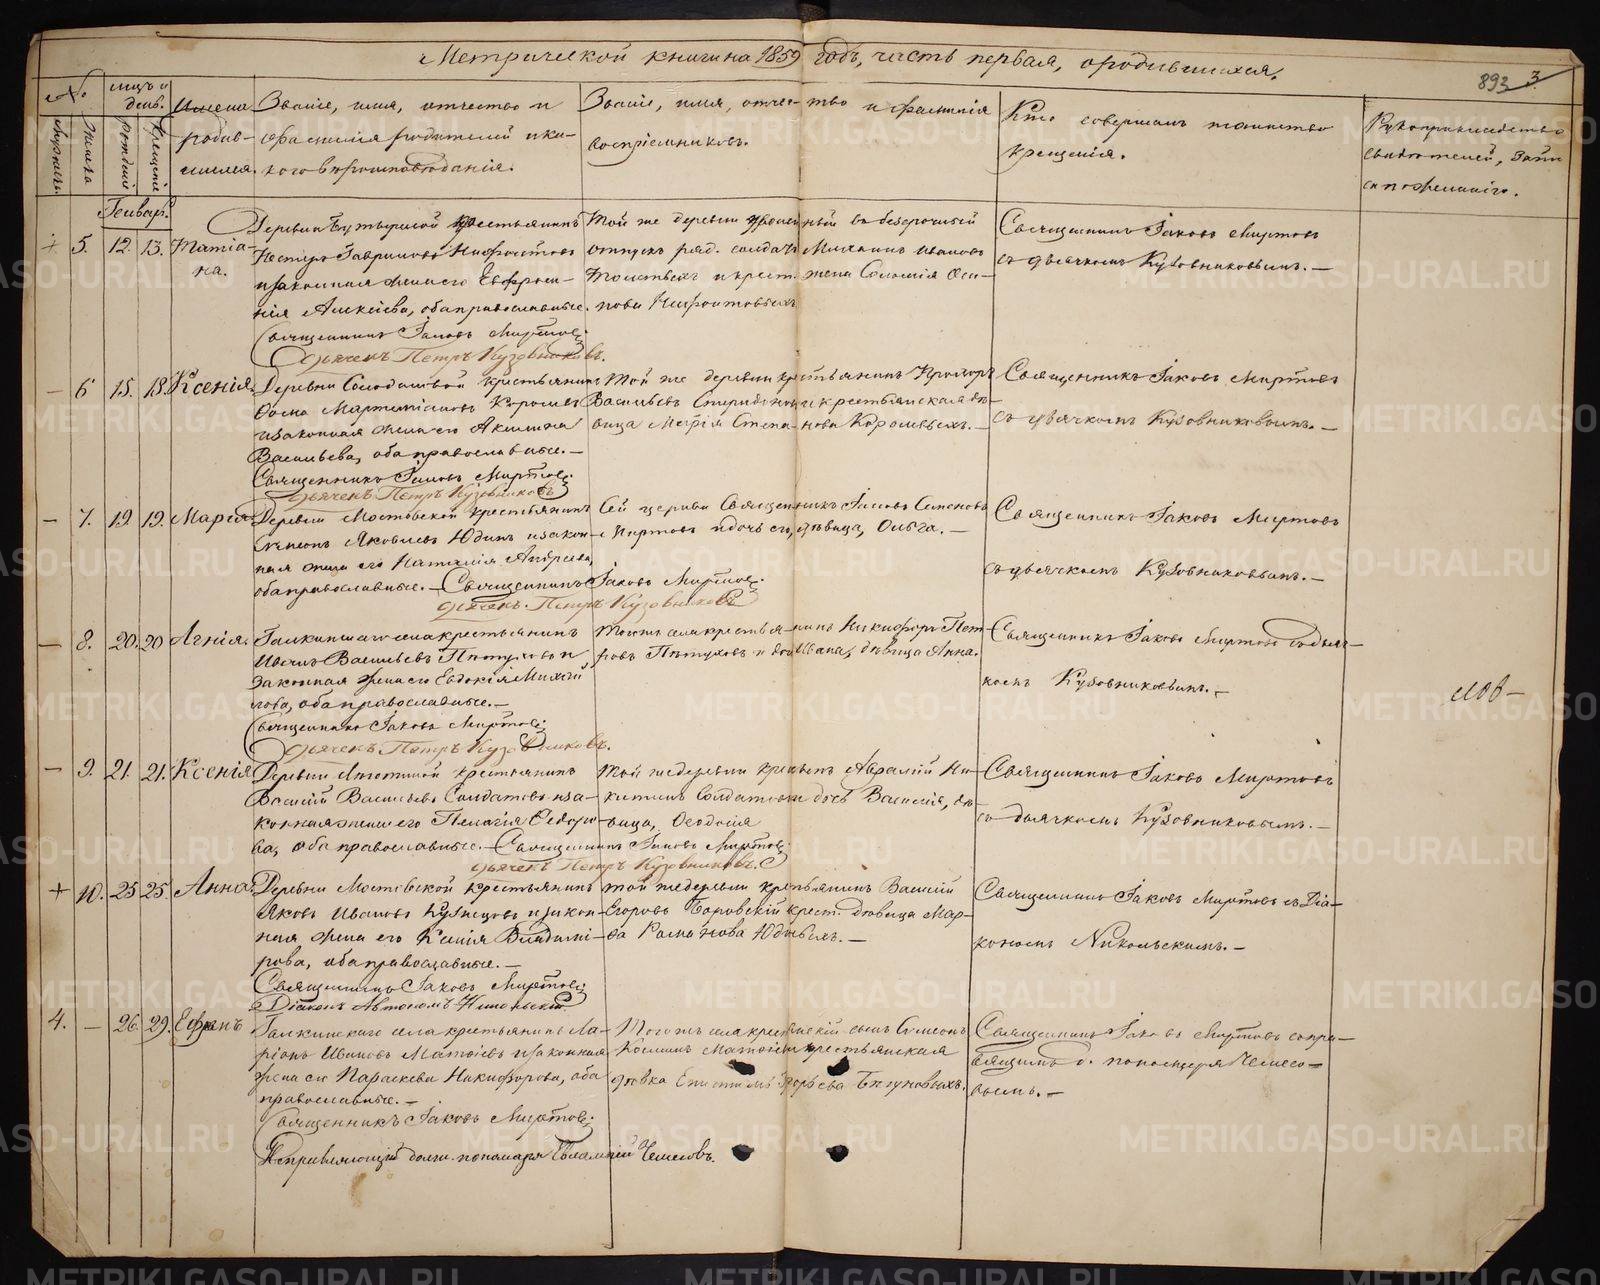 Метрической книги на 1859 годъ, часть первая, о родившихся.
893 3
№
мѣсяцъ и день.
Мужеска
Женска
рожденія
крещенія
Имена родив-
шихся.
Званіе, имя, отчество и
фамилія родителей и ка-
кого вѣроисповѣданія.
Званіе, имя, отчество и фамилія
воспріемниковъ.
Кто совершалъ таинство
крещенія.
Рукоприкладство
свидѣтелей, запи
си по желанію.
Генварь.
5. 12. 13. Татіа-
на.
Деревни крестьянинъ
Несторъ Гавриловъ
и законная жена его Евфроси-
нія Алексіева, оба православные.
Священникъ Іаковъ Миртовъ
Дьячекъ Петръ Кузовниковъ.
Той же деревни въ безсрочный
отпускъ ряд. солдатъ Михаилъ Ивановъ
и крест. жена Соломія Оси-
пова
Священникъ Іаковъ Миртовъ
съ дьячкомъ Кузовниковымъ. —
— 6 15. 18. Ксенія.
Деревни Солодиловой крестьянинъ
Ѳома Королевъ
и законная жена его Акилина
Васильева, оба православные. —
Священникъ Іаковъ Миртовъ
Дьячекъ Петръ Кузовниковъ
Той же деревни крестьянинъ Прохоръ
Васильевъ Спиридоновъ и крестьянская дѣ-
вица Марія Степанова Королевыхъ. —
Священникъ Іаковъ Миртовъ
съ дьячкомъ Кузовниковымъ. —
— 7. 19. 19. Марія.
Деревни Мостовской крестьянинъ
Симеонъ Яковлевъ Юдинъ и закон-
ная жена его Наталія Андреева,
оба православные. — Священникъ Іаковъ Миртовъ
дьячекъ Петръ Кузовниковъ
Сей церкви Священникъ Іаковъ Симеоновъ
Миртовъ и дочь его, дѣвица, Ольга. —
Священникъ Іаковъ Миртовъ
съ дьячкомъ Кузовниковымъ. —
— 8. 20. 20 Агнія.
Галкинскаго села крестьянинъ
Иванъ Васильевъ Пѣтуховъ и
законная жена его Евдокія Михай
лова, оба православные. —
Священникъ Іаковъ Миртовъ
Дьячекъ Петръ Кузовниковъ.
Тогожъ села крестьянинъ Никифоръ Пет
ровъ Пѣтуховъ и дочь Ивана, дѣвица Анна.
Священникъ Іаковъ Миртовъ съ дьяч-
комъ Кузовниковымъ. —
— 9. 21. 21. Ксенія
Деревни крестьянинъ
Василій Васильевъ Солдатовъ и за-
конная жена его Пелагія Ѳедоро-
ва, оба православные. — Священникъ Іаковъ Миртовъ
дьячекъ Петръ Кузовниковъ.
Той же деревни крестьян. Авраамій Ни-
китинъ Солдатовъ и дочь Василія, дѣ-
вица, Ѳеодосія
Священникъ Іаковъ Миртовъ
съ дьячкомъ Кузовниковымъ. —
+ 10. 25 25. Анна.
Деревни Мостовской крестьянинъ
Яковъ Ивановъ Кузнецовъ и закон-
ная жена его Ксенія Владимі-
рова, оба православные. —
Священникъ Іаковъ Миртовъ
Діаконъ Автономъ Никольскій
той же деревни крестьянинъ Василій
Егоровъ Боровскій и крест. дѣвица Мар-
ѳа Романова Юдиныхъ. —
Священникъ Іаковъ Миртовъ съ Діа-
кономъ Никольскимъ. —
4. — 26. 29. Ефремъ
Галкинскаго села крестьянинъ Ла-
ріонъ Ивановъ Матвѣевъ и законная
жена его Параскева Никифорова, оба
православные. —
Священникъ Іаковъ Миртовъ
Исправляющій должн. пономаря Евлампій Чемесовъ.
Тогожъ села крестьянскій сынъ Симеонъ
Косминъ и крестьянская
дѣвка Епистимія Бѣгуновыхъ.
Священникъ Іаковъ Миртовъ съ испра-
вляющимъ д. пономаря Чемесо-
вымъ. —
METRIKI.GASO-URAL.RU